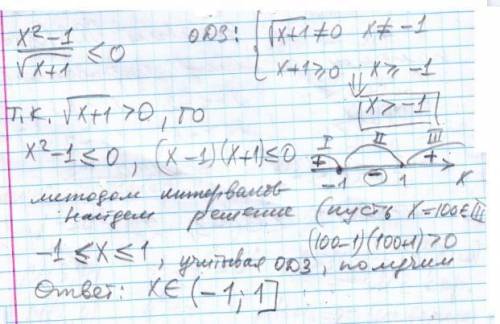 (x²-1)/√(x+1) ≤ 0   ОДЗ: { √x+1 ≠ 0   x ≠ -1
x+1 ≥ 0   x ≥ -1
x > -1
т.к. √x+1 > 0, то
x²-1 ≤ 0, (x-1)(x+1) ≤ 0
I II III
+ - +
-1 1 x
методом интервалов
найдем решение (пусть x=100 ∈ III
(100-1)(100+1) > 0
-1 ≤ x ≤ 1, учитывая ОДЗ, получим
Ответ: x ∈ (-1; 1]